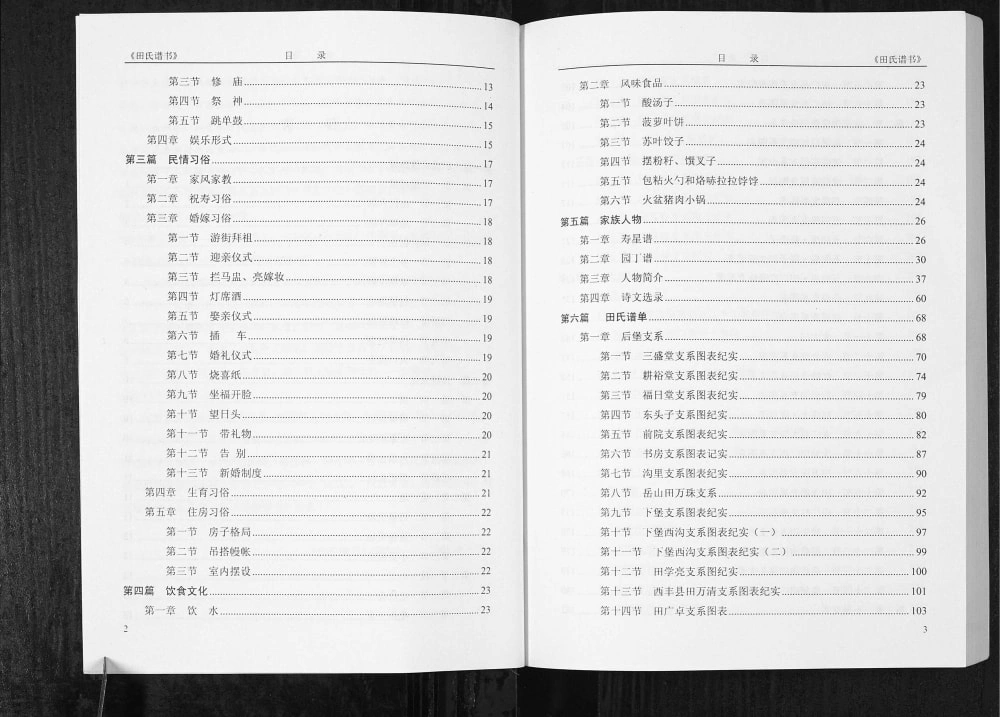 《田氏谱书》 目 录
第三节 修 庙 13
第四节 祭 神 14
第五节 跳单鼓 15
第四章 娱乐形式 15
第三篇 民情习俗 17
第一章 家风家教 17
第二章 祝寿习俗 17
第三章 婚嫁习俗 18
第一节 游街拜祖 18
第二节 迎亲仪式 18
第三节 拦马盅、亮嫁妆 18
第四节 灯席酒 19
第五节 娶亲仪式 19
第六节 插 车 19
第七节 婚礼仪式 19
第八节 烧喜纸 20
第九节 坐福开脸 20
第十节 望日头 20
第十一节 带礼物 20
第十二节 告 别 21
第十三节 新婚制度 21
第四章 生育习俗 21
第五章 住房习俗 22
第一节 房子格局 22
第二节 吊搭幔帐 22
第三节 室内摆设 22
第四篇 饮食文化 23
第一章 饮 水 23
2
目 录 《田氏谱书》
第二章 风味食品 23
第一节 酸汤子 23
第二节 菠萝叶饼 23
第三节 苏叶饺子 24
第四节 摆粉籽、馇叉子 24
第五节 包粘火勺和烙哧拉拉饽饽 24
第六节 火盆猪肉小锅 24
第五篇 家族人物 26
第一章 寿星谱 26
第二章 园丁谱 30
第三章 人物简介 37
第四章 诗文选录 60
第六篇 田氏谱单 68
第一章 后堡支系 68
第一节 三盛堂支系图表纪实 70
第二节 耕裕堂支系图表纪实 74
第三节 福日堂支系图表纪实 79
第四节 东头子支系图纪实 80
第五节 前院支系图表纪实 82
第六节 书房支系图表记实 87
第七节 沟里支系图表纪实 90
第八节 岳山田万珠支系 92
第九节 下堡支系图表纪实 95
第十节 下堡西沟支系图表纪实（一） 97
第十一节 下堡西沟支系图表纪实（二） 99
第十二节 田学亮支系图纪实 100
第十三节 西丰县田万清支系图表纪实 101
第十四节 田广卓支系图表 103
3